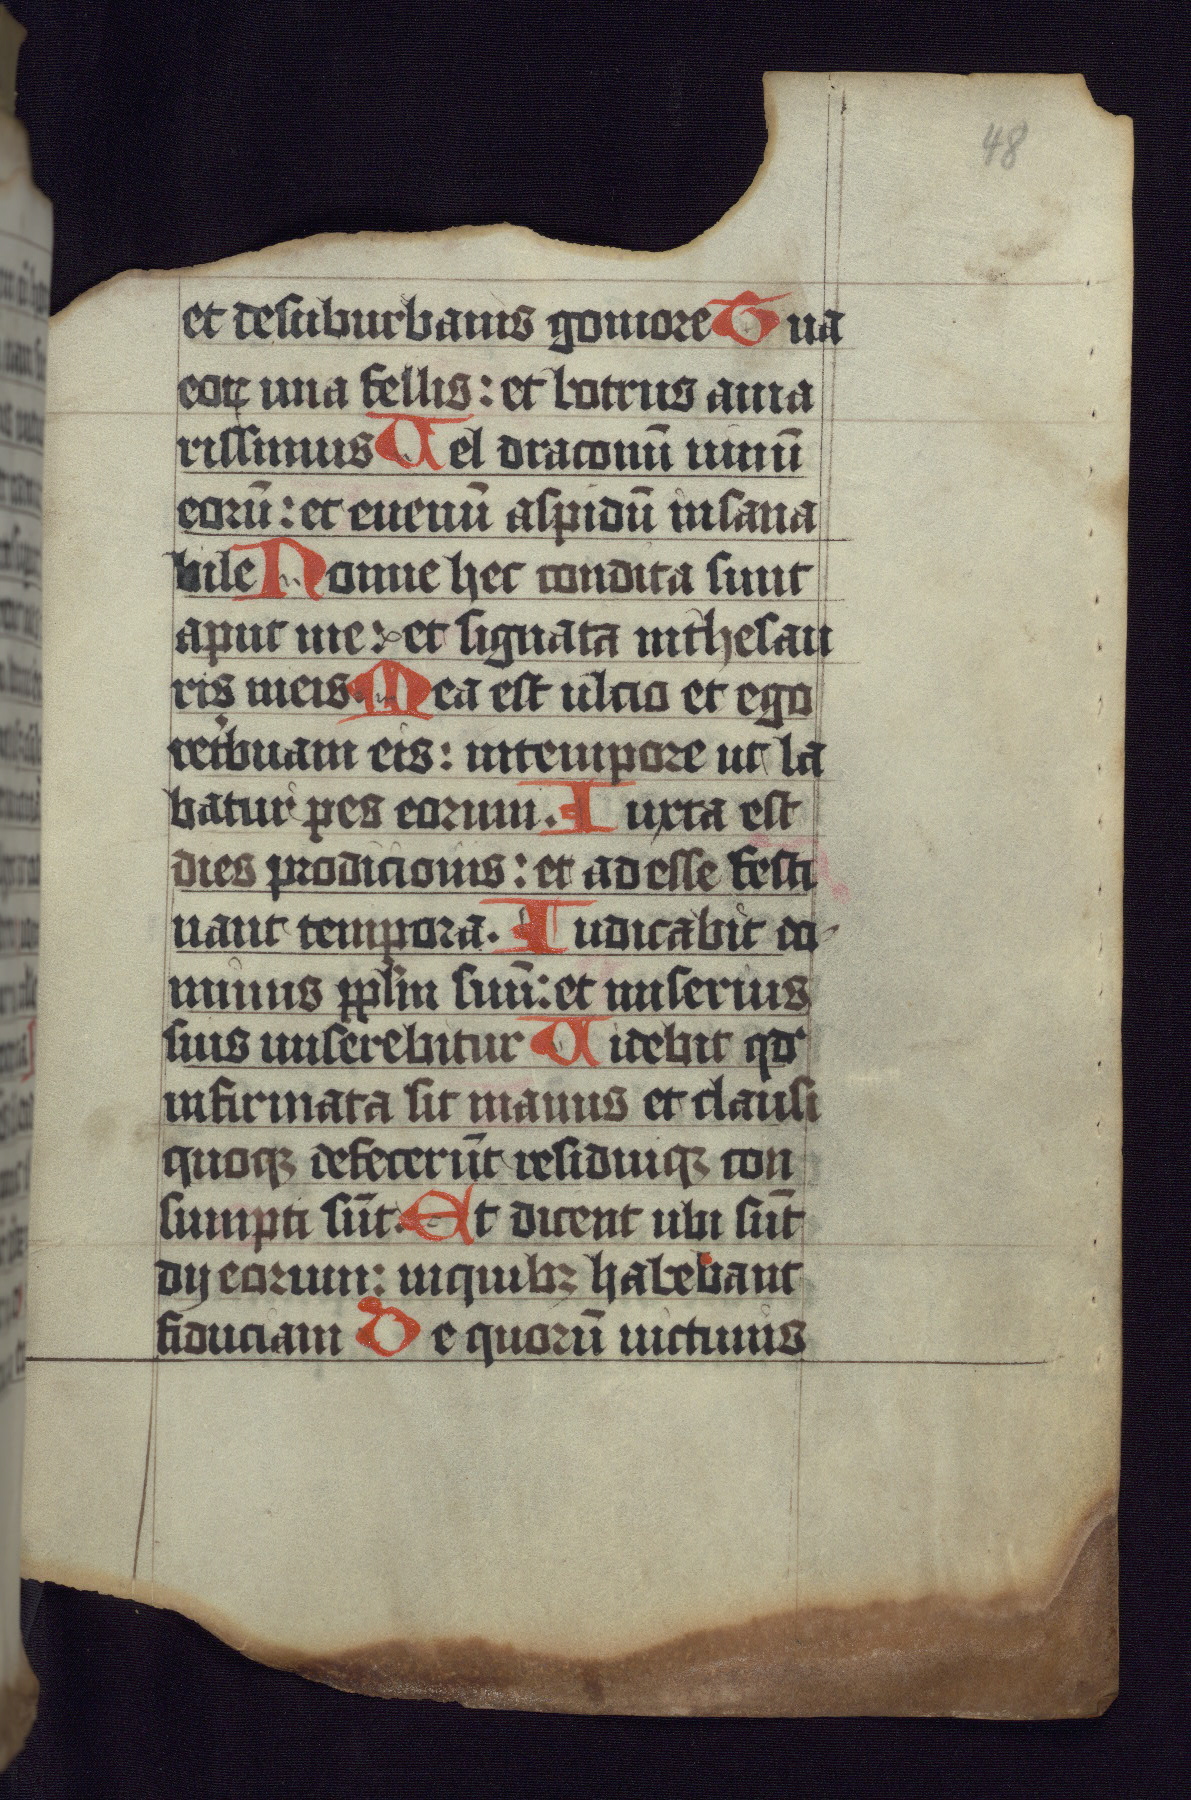 48
et desuburbanis gomore Uua
eoꝝ uua fellis: et botrus ama
rissimus Uel draconū uinū
eorū: et euenū aspidū insana
bile Nonne hec condita sunt
aput me: et signata inthesau
ris meis. Mea est ulcio et ego
retͥbuam eis: intempore ut la
batur pes eorum. Iuxta est
dies prodicionis: et adesse festi
nant tempora. Iudicabit do
minus pplm suū: et inseruis
suis miserebitur Uidebit qd
infirmata sit manus et clausi
quoqꝫ defecerūt residuiqꝫ con
sumpti sūt. Et dicent ubi sūt
dij eorum: inquibꝫ habebant
fiduciam De quorū uictimis